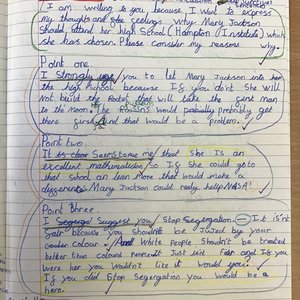 I am writing to you because I want to express
my thoughts and feelings. Why Mary Jackson
should attend her high School (Hampton Institute) which
she has chosen. Please consider my reasons why.
Point one
I strongly urge you to let Mary Jackson into
the high school because If you don't She will
Not build the Rocket that will take the first man
to the moon. The Russians would probably get
there first And that would be a problem.
Point two
It is clear Seems to me that she Is an
excellent mathematician so If she could go to
that school can lean More that would make a
difference Mary Jackson could really help NASA!
Point Three
I Suggest you Stop Segregation. It is'nt
fair because you shouldn't be Juged by your
Colour. And White people Shouldn't be treated
better than Coloured people It Just isnt Fair and If you
were her you wouldn't like it would you.
If you did Stop Segregation you would be a
hero.